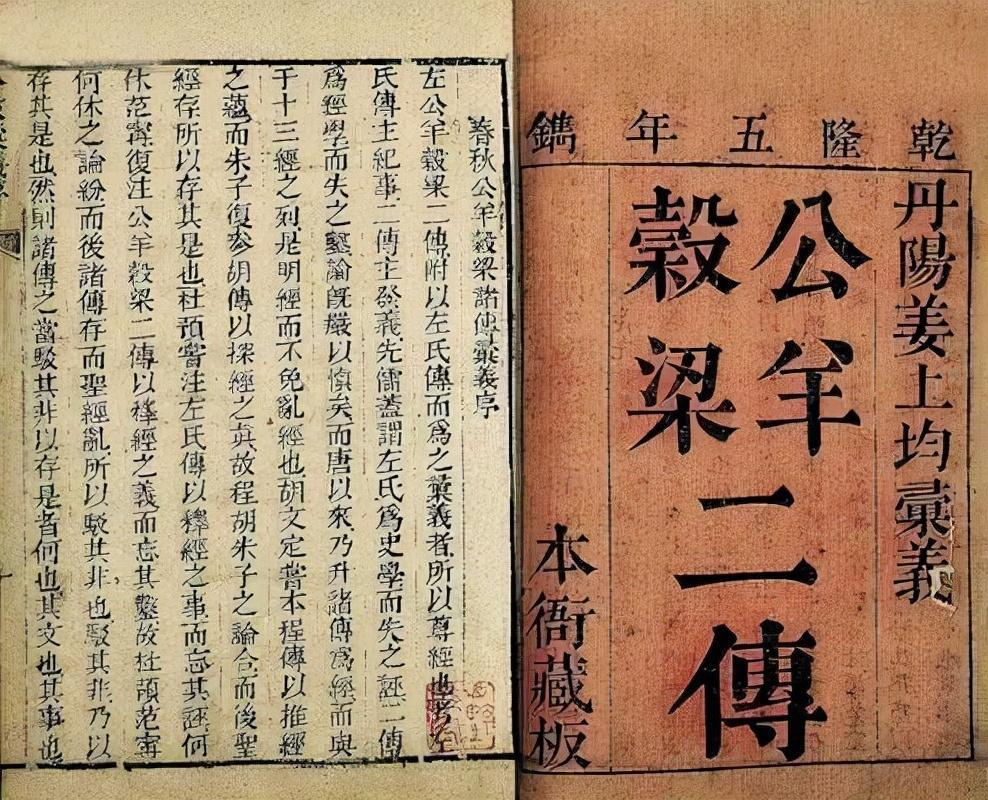 乾隆五年鐫
丹陽姜上均彙義
公羊
穀梁
二傳
本衙藏板
春秋公羊穀梁諸傳彙義序
左公羊穀梁二傳附以左氏傳而爲之彙義者所以尊經也考左
氏傳主紀事二傳主發義先儒蓋謂左氏爲史學而失之誣二傳
爲經學而失之鑿論旣嚴以愼矣而唐以來乃升諸傳爲經而與
于十三經之列是明經而不免亂經也胡文定嘗本程傳以推經
之蘊而朱子復參胡傳以探經之眞故程胡朱子之論合而後聖
經存所以存其是也杜預嘗注左氏傳以釋經之事而忘其誣何
休范甯復注公羊穀梁二傳以釋經之義而忘其鑿故杜預范甯
何休之論紛而後諸傳存而聖經亂所以駁其非也駁其非乃以
存其是也然則諸傳之當駁其非以存是者何也其文也其事也